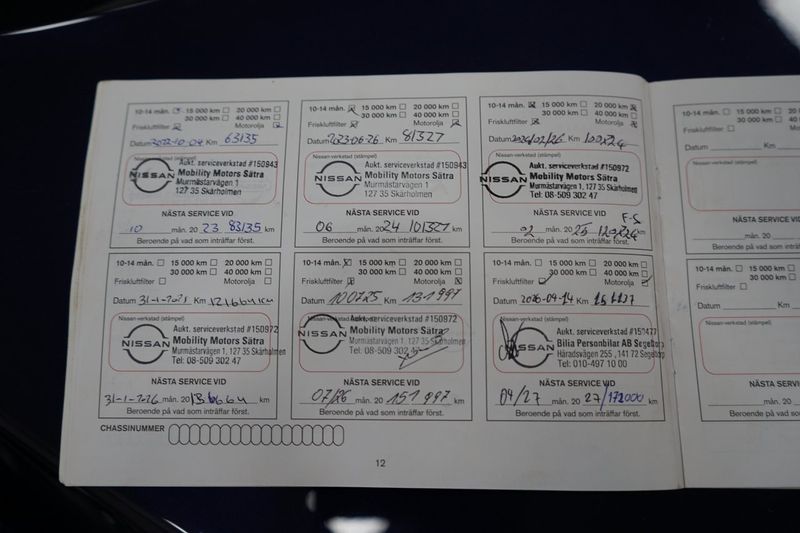 10-14 mån. 15 000 km 20 000 km
30 000 km 40 000 km
Friskluftfilter Motorolja
Datum 2022-10-04 Km 63135
Nissan-verkstad (stämpel)
NISSAN
Aukt. serviceverkstad #150943
Mobility Motors Sätra
Murmästarvägen 1
127 35 Skärholmen
NÄSTA SERVICE VID
10 mån. 20 23 83135 km
Beroende på vad som inträffar först.
10-14 mån. 15 000 km 20 000 km
30 000 km 40 000 km
Friskluftfilter Motorolja
Datum 2023-06-26 Km 81327
Nissan-verkstad (stämpel)
NISSAN
Aukt. serviceverkstad #150943
Mobility Motors Sätra
Murmästarvägen 1
127 35 Skärholmen
NÄSTA SERVICE VID
06 mån. 20 24 101327 km
Beroende på vad som inträffar först.
10-14 mån. 15 000 km 20 000 km
30 000 km 40 000 km
Friskluftfilter Motorolja
Datum 2024/02/26 Km
Nissan-verkstad (stämpel)
NISSAN
Aukt. serviceverkstad #150972
Mobility Motors Sätra
Murmästarvägen 1, 127 35 Skärholmen
Tel: 08-509 302 47
NÄSTA SERVICE VID
02 mån. 20 25 km
Beroende på vad som inträffar först.
10-14 mån. 15 000 km 20 000 km
30 000 km 40 000 km
Friskluftfilter Motorolja
Datum 31-1-2025 Km 121664 km
Nissan-verkstad (stämpel)
NISSAN
Aukt. serviceverkstad #150972
Mobility Motors Sätra
Murmästarvägen 1, 127 35 Skärholmen
Tel: 08-509 302 47
NÄSTA SERVICE VID
31-1-2026 mån. 20 km
Beroende på vad som inträffar först.
10-14 mån. 15 000 km 20 000 km
30 000 km 40 000 km
Friskluftfilter Motorolja
Datum 100725 Km 131997
Nissan-verkstad (stämpel)
NISSAN
Aukt. serviceverkstad #150972
Mobility Motors Sätra
Murmästarvägen 1, 127 35 Skärholmen
Tel: 08-509 302 47
NÄSTA SERVICE VID
07/26 mån. 20 151997 km
Beroende på vad som inträffar först.
10-14 mån. 15 000 km 20 000 km
30 000 km 40 000 km
Friskluftfilter Motorolja
Datum 2026-04-14 Km
Nissan-verkstad (stämpel)
NISSAN
Aukt. serviceverkstad #151477
Bilia Personbilar AB Segeltorp
Häradsvägen 255, 141 72 Segeltorp
Tel: 010-497 10 00
NÄSTA SERVICE VID
04/27 mån. 20 27/172000 km
Beroende på vad som inträffar först.
CHASSINUMMER
12
10-14 mån. 15 000 km
30 000 km
Friskluftfilter
Datum Km
Nissan-verkstad (stämpel)
NÄSTA
mån. 20
Beroende på vad
10-14 mån. 15 000
30 000
Friskluftfilter
Datum
Nissan-verkstad (stämpel)
NÄSTA
Beroende på